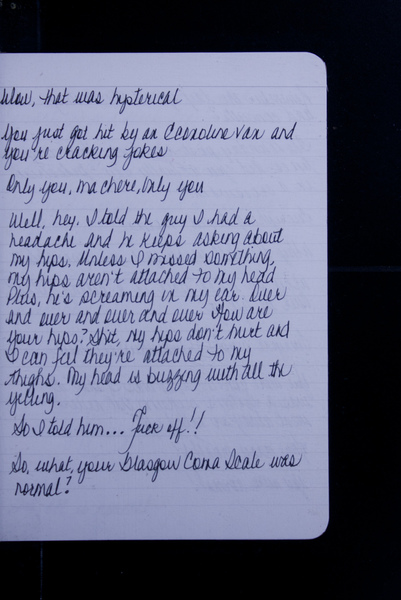 Wow, that was hysterical
You just got hit by an Econoline van and
you're cracking jokes
Only you, ma chere, Only you
Well, hey. I told the guy I had a
headache and he keeps asking about
my hips. Unless I missed something,
my hips aren't attached to my head
Plus, he's screaming in my ear. Over
and over and over and over How are
your hips? Shit, my hips don't hurt and
I can feel they're attached to my
thighs. My head is buzzing with all the
yelling.
So I told him... Fuck off!!
So, what, your Glasgow Coma Scale was
normal?